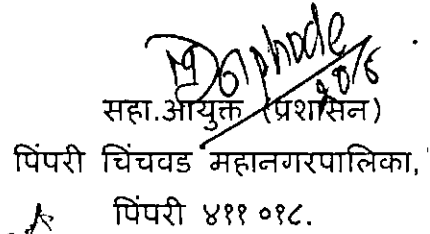 सहा.आयुक्त (प्रशासन)
पिंपरी चिंचवड महानगरपालिका,
पिंपरी ४११ ०१८.